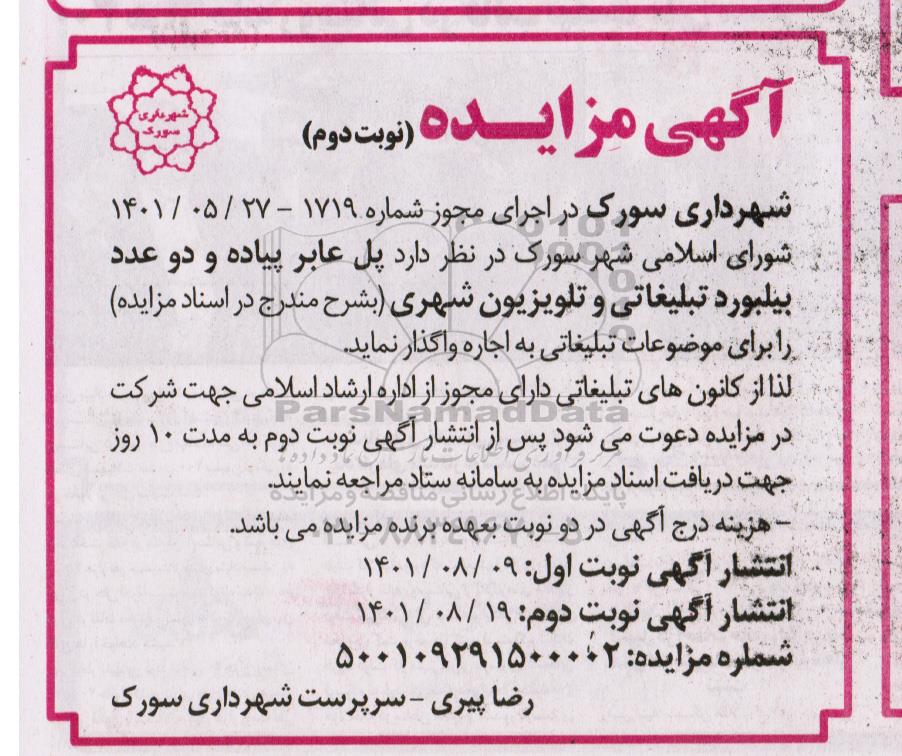 آگهی مزایده (نوبت دوم)
شهرداری
سورک
شهرداری سورک در اجرای مجوز شماره ۱۷۱۹ – ۲۷ / ۰۵ / ۱۴۰۱
شورای اسلامی شهر سورک در نظر دارد پل عابر پیاده و دو عدد
بیلبورد تبلیغاتی و تلویزیون شهری (بشرح مندرج در اسناد مزایده)
را برای موضوعات تبلیغاتی به اجاره واگذار نماید.
لذا از کانون های تبلیغاتی دارای مجوز از اداره ارشاد اسلامی جهت شرکت
ParsNamadData
در مزایده دعوت می شود پس از انتشار آگهی نوبت دوم به مدت ۱۰ روز
جهت دریافت اسناد مزایده به سامانه ستاد مراجعه نمایند.
پایگاه اطلاع رسانی مناقصه و مزایده
– هزینه درج آگهی در دو نوبت بعهده برنده مزایده می باشد.
انتشار آگهی نوبت اول: ۰۹ / ۰۸ / ۱۴۰۱
انتشار آگهی نوبت دوم: ۱۹ / ۰۸ / ۱۴۰۱
شماره مزایده: ۵۰۰۱۰۹۲۹۱۵۰۰۰۰۰۲
رضا پیری – سرپرست شهرداری سورک